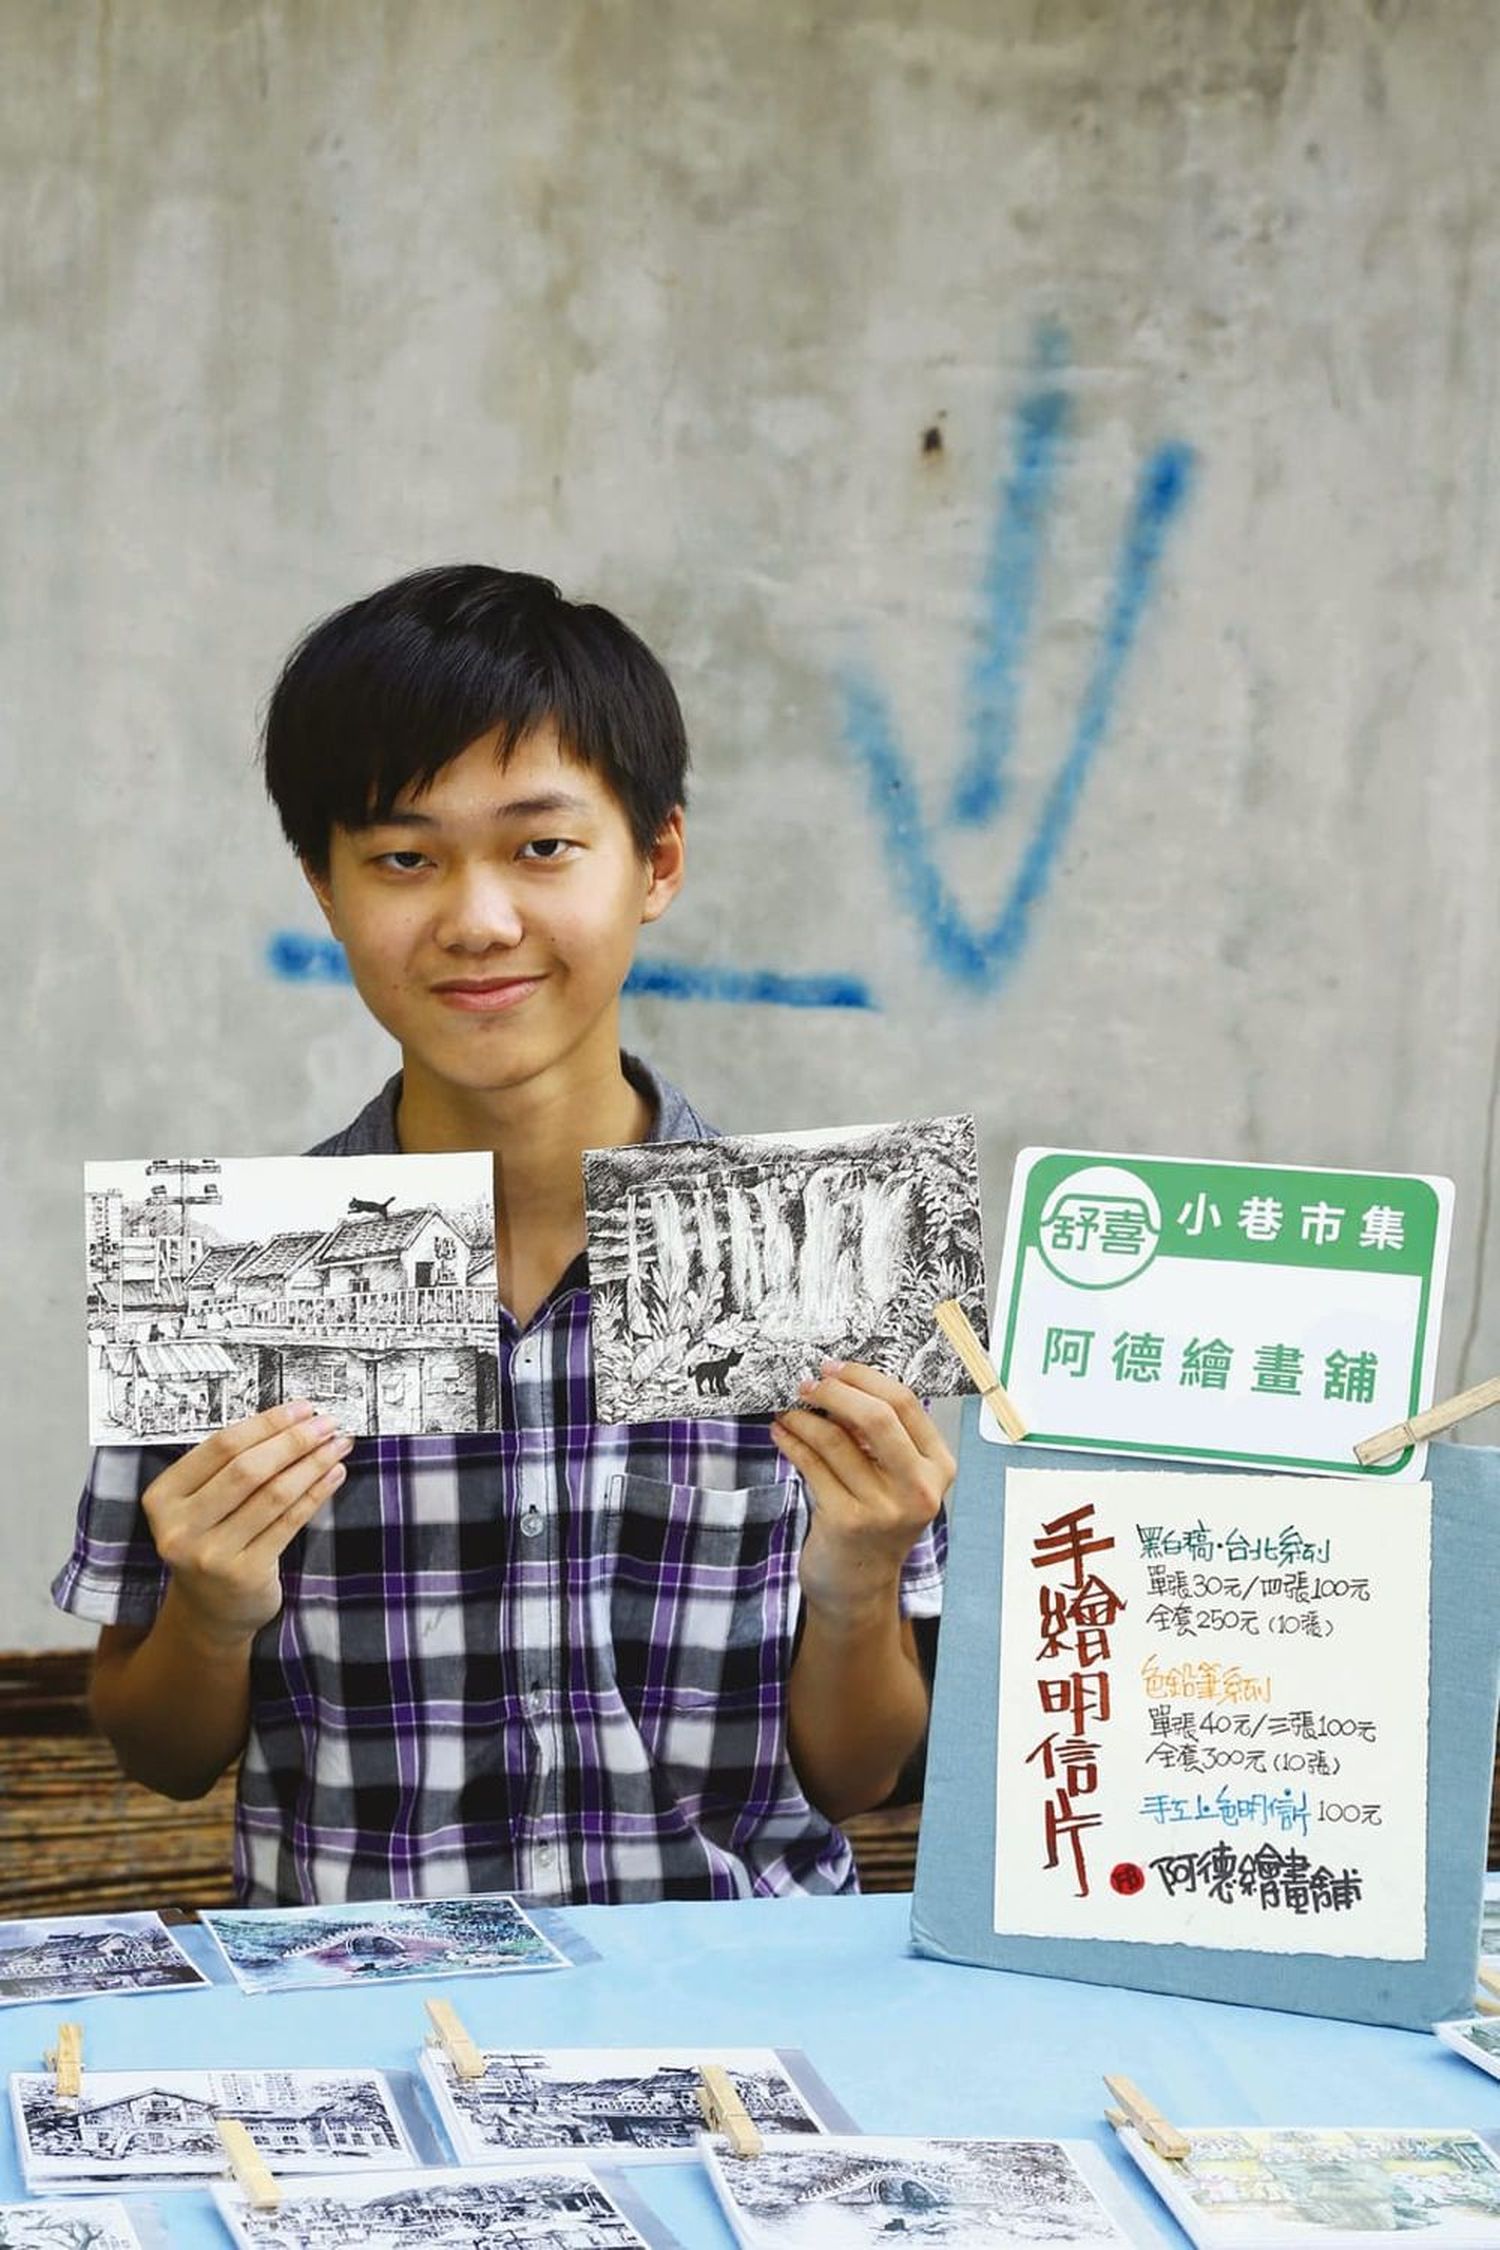 舒喜
小巷市集
阿德繪畫舖
手繪明信片
黑白稿·台北系列
單張30元/四張100元
全套250元(10張)
色鉛筆系列
單張40元/三張100元
全套300元(10張)
手工上色明信片 100元
阿德繪畫舖